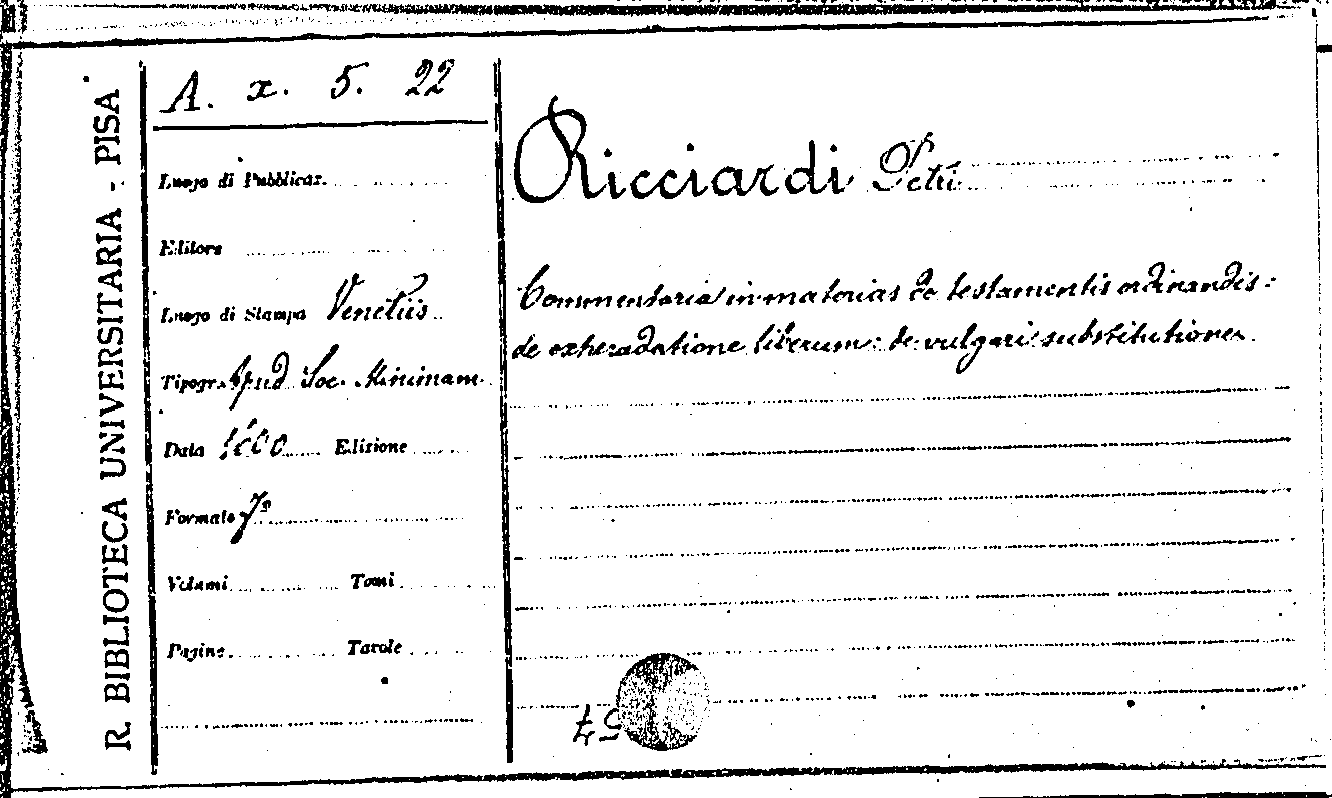 R. BIBLIOTECA UNIVERSITARIA - PISA
A. x. 5. 22
Luogo di Pubblicaz.
Editore
Luogo di Stampa Venetiis
Tipogr. Apud Soc. Minimam
Data 1600 Edizione
Formato fº
Volumi Tomi
Pagine Tavole
Ricciardi Petri
Commentaria in materias de testamentis ordinandis:
de exheredatione liberum: de vulgari substitutione